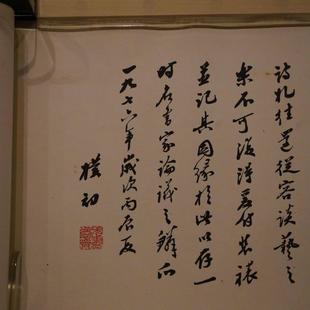 詩札往還從容談藝之
樂不可復得爰付裝褙
並記其因緣於此以存一
時名書家論議之鱗爪
一九七六年歲次丙辰夏
樸初